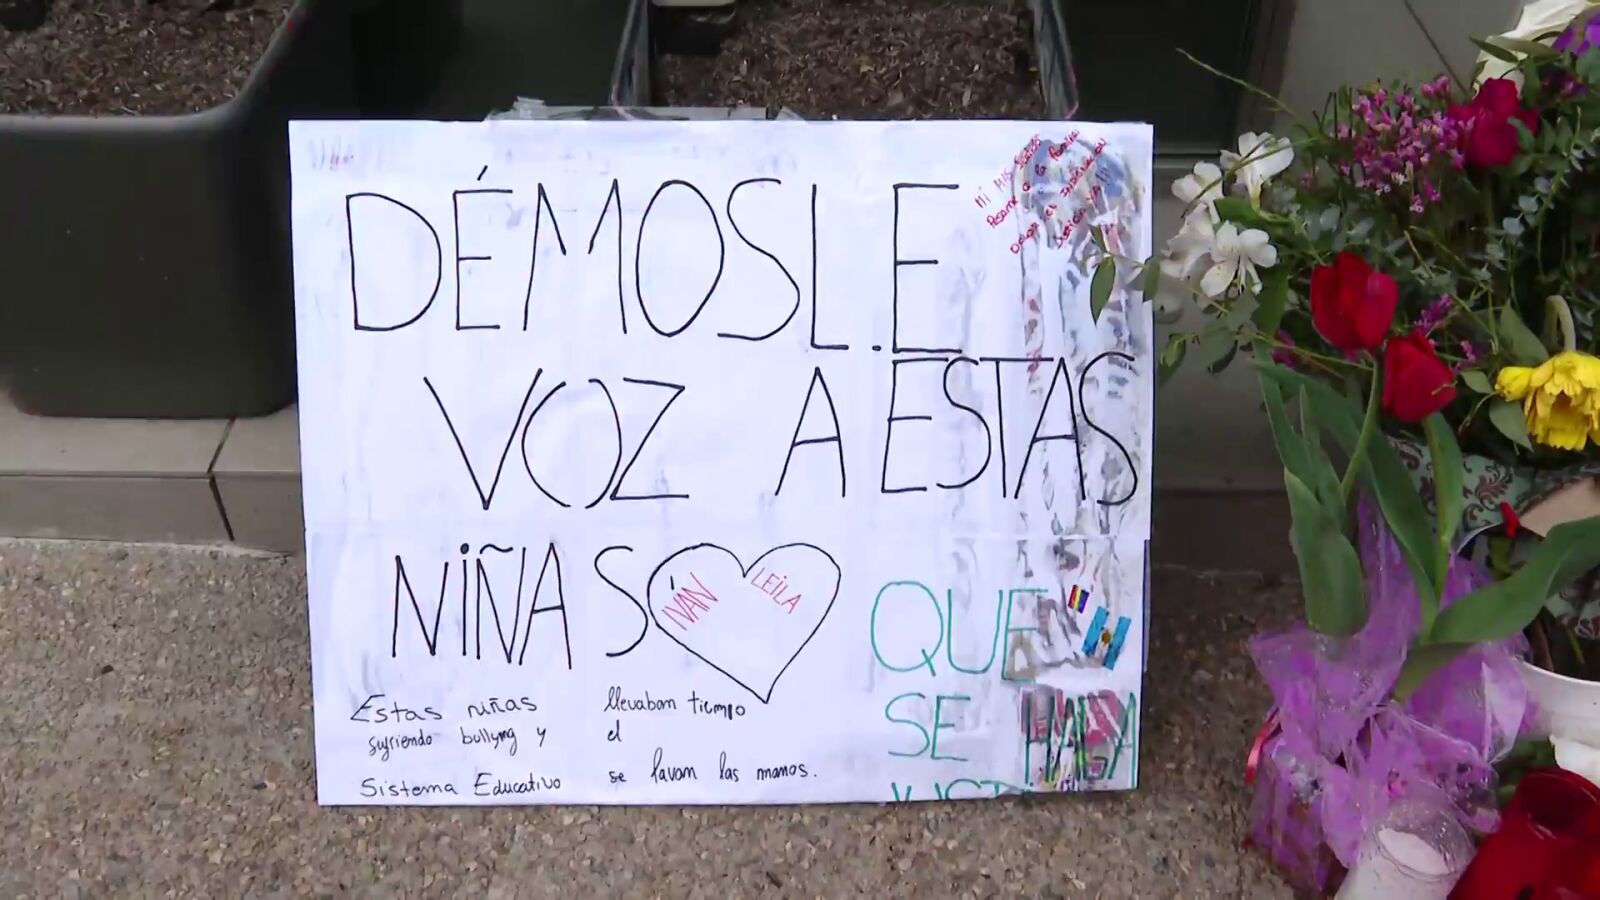 DÉMOSLE
VOZ A ESTAS
NIÑAS
IVÁN LEILA
Estas niñas llevaban tiempo
sufriendo bullyng y el
Sistema Educativo se lavam las manos.
QUE
SE HAGA